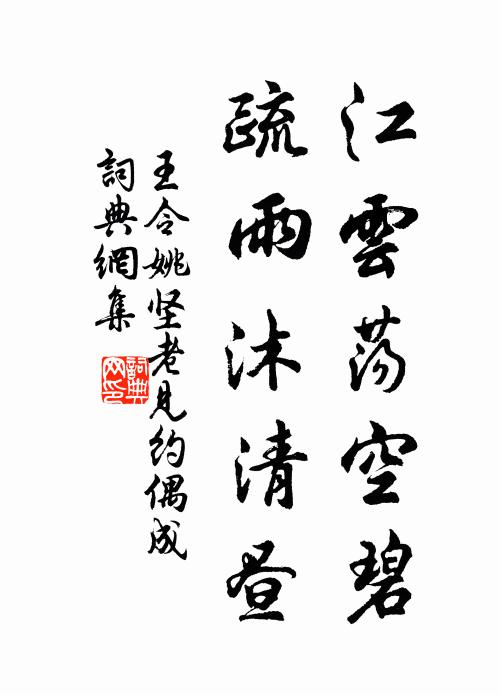 江雲蕩空碧
疏雨沐清昼
王令姚坚老見约偶成
詞典網集
詞典網印